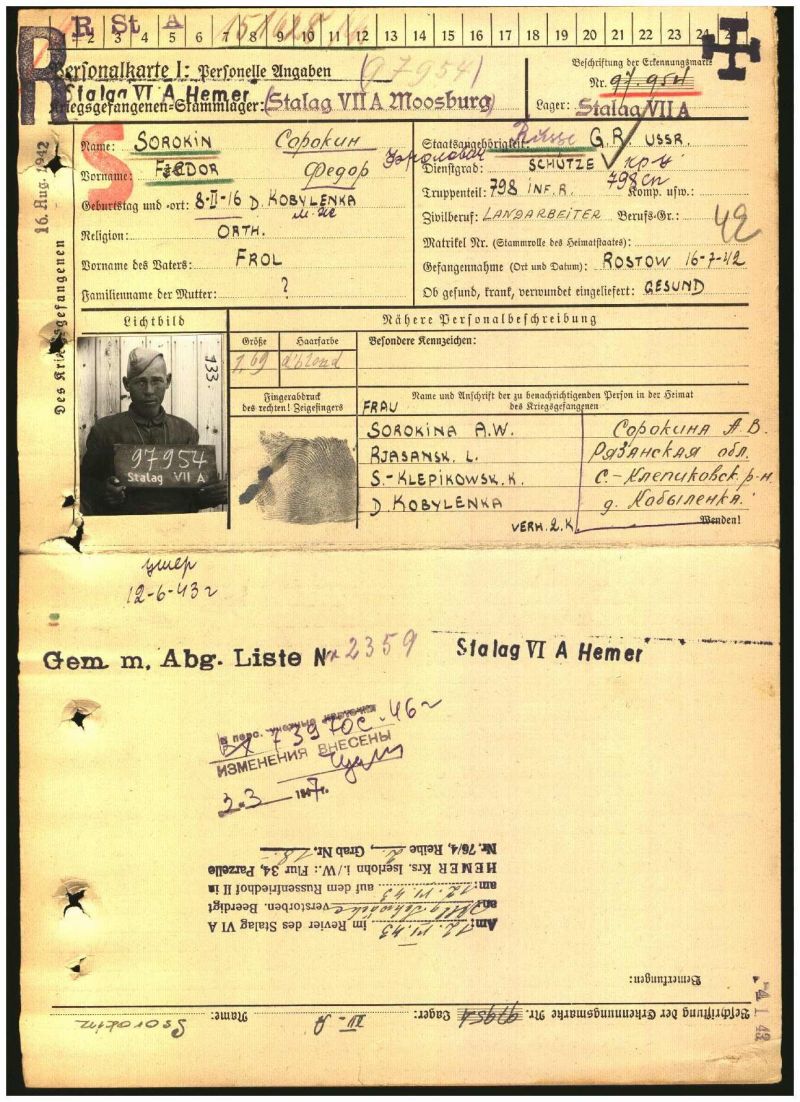 R St A
2 3 4 5 6 7 8 9 10 11 12 13 14 15 16 17 18 19 20 21 22 23 24
R
Personalkarte I: Personelle Angaben
(97954)
Beschriftung der Erkennungsmarke
Nr. 97.954
Stalag VI A Hemer
Kriegsgefangenen-Stammlager: (Stalag VII A Moosburg)
Lager: Stalag VII A
Des Kriegsgefangenen
16. Aug. 1942
S
Name: SOROKIN Сорокин
Vorname: FEDOR Федор Фролович
Geburtstag und -ort: 8-II-16 D. KOBYLENKA
Religion: ORTH.
Vorname des Vaters: FROL
Familienname der Mutter: ?
Staatsangehörigkeit: G.R. USSR.
Dienstgrad: SCHÜTZE кр-ц
Truppenteil: 798 INF. R. Komp. usw.: 798 сп
Zivilberuf: LANDARBEITER Berufs-Gr.: 42
Matrikel Nr. (Stammrolle des Heimatstaates):
Gefangennahme (Ort und Datum): ROSTOW 16-7-42
Ob gesund, krank, verwundet eingeliefert: GESUND
Lichtbild
Nähere Personalbeschreibung
Größe Haarfarbe Besondere Kennzeichen:
1,69 d'blond
133.
97954
Stalag VII A
Fingerabdruck
des rechten! Zeigefingers
Name und Anschrift der zu benachrichtigenden Person in der Heimat
des Kriegsgefangenen
FRAU
SOROKINA A.W. Сорокина А.В.
RJASANSK. L. Рязанская обл.
S.-KLEPIKOWSK. K. С.-Клепиковск. р-н
D. KOBYLENKA д. Кобыленка.
VERH. 2.K.
Wenden!
умер
12-6-43 г
Gem. m. Abg. Liste № 2359
Stalag VI A Hemer
73970с-46г
ИЗМЕНЕНИЯ ВНЕСЕНЫ
Nr. 76/4, Reihe 2, Grab Nr. 18.-
HEMER Krs. Iserlohn i./W.: Flur 34, Parzelle
am: 12.VI.43 auf dem Russenfriedhof II in
an: verstorben. Beerdigt
Am: 12.VI.43 im Revier des Stalag VI A
Bemerkungen:
Beschriftung der Erkennungsmarke Nr. 97954 Lager: VII-A Name: Ssorokin